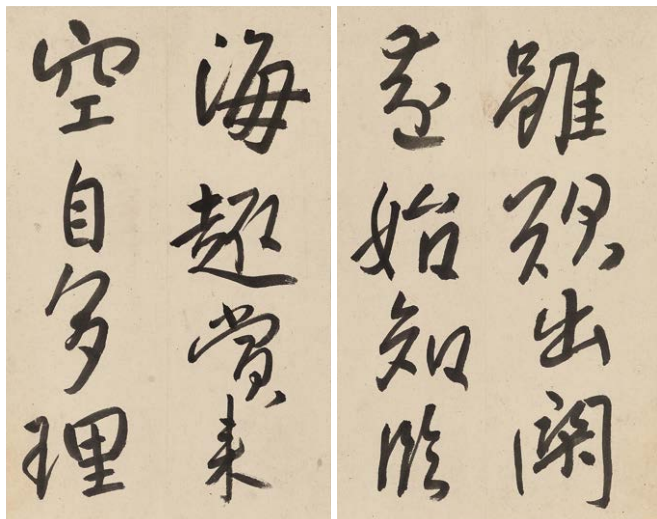 雖歎出關
遠始知臨
海趣賞來
空自多理